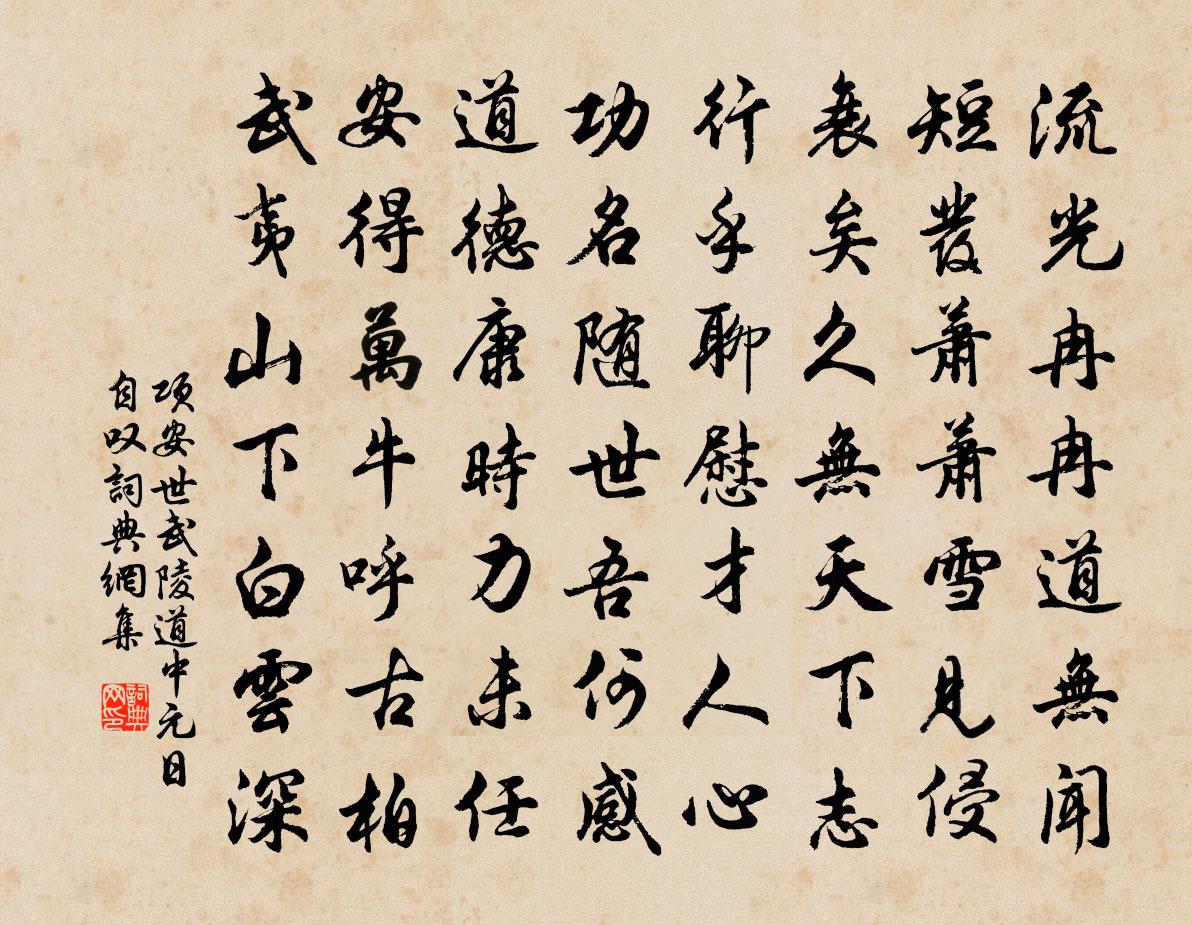 流光冉冉道無聞
短髮蕭蕭雪見侵
衰矣久無天下志
行乎聊慰才人心
功名随世吾何感
道德康時力未任
安得萬牛呼古柏
武夷山下白雲深
項安世武陵道中元日
自叹詞典網集
詞典网印